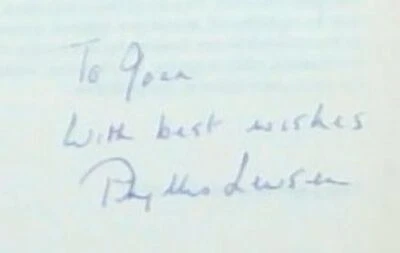 To Joan
With best wishes
Phyllis